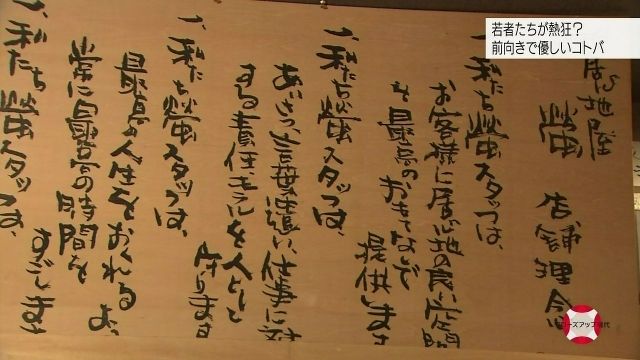 若者たちが熱狂?
前向きで優しいコトバ
居心地屋
螢 店舗理念
一、私たち螢スタッフは、
お客様に居心地の良い空間
を最高のおもてなしで
提供します
一、私たち螢スタッフは、
あいさつ、言葉遣い、仕事に対
する責任モラルを人として
守ります
一、私たち螢スタッフは、
最高の人生をおくれるよ、
常に最高の時間を
すごします
一、私たち螢スタッフは、
クローズアップ現代